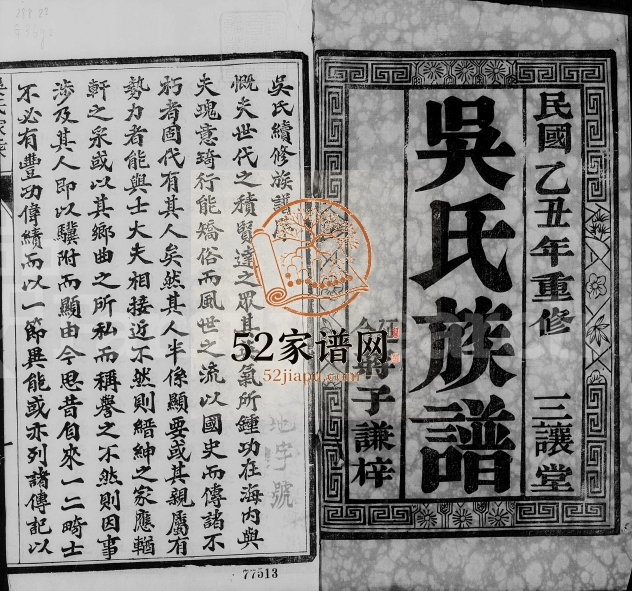 民國乙丑年重修
三讓堂
吳氏族譜
蔣子謙梓
吳氏續修族譜
慨夫世代之積賢達之眾其 氣所鍾功在海內與
夫瑰意琦行能矯俗而風世之流以國史而傳諸不
朽者固代有其人矣然其人半係顯要或其親屬有
勢力者能與士大夫相接近不然則縉紳之家應輶
軒之采或以其鄉曲之所私而稱譽之不然則因事
涉及其人即以驥附而顯由今思昔自來一二畸士
不必有豐功偉績而以一節異能或亦列諸傳記以
地字號
77513
52家谱网
52jiapu.com